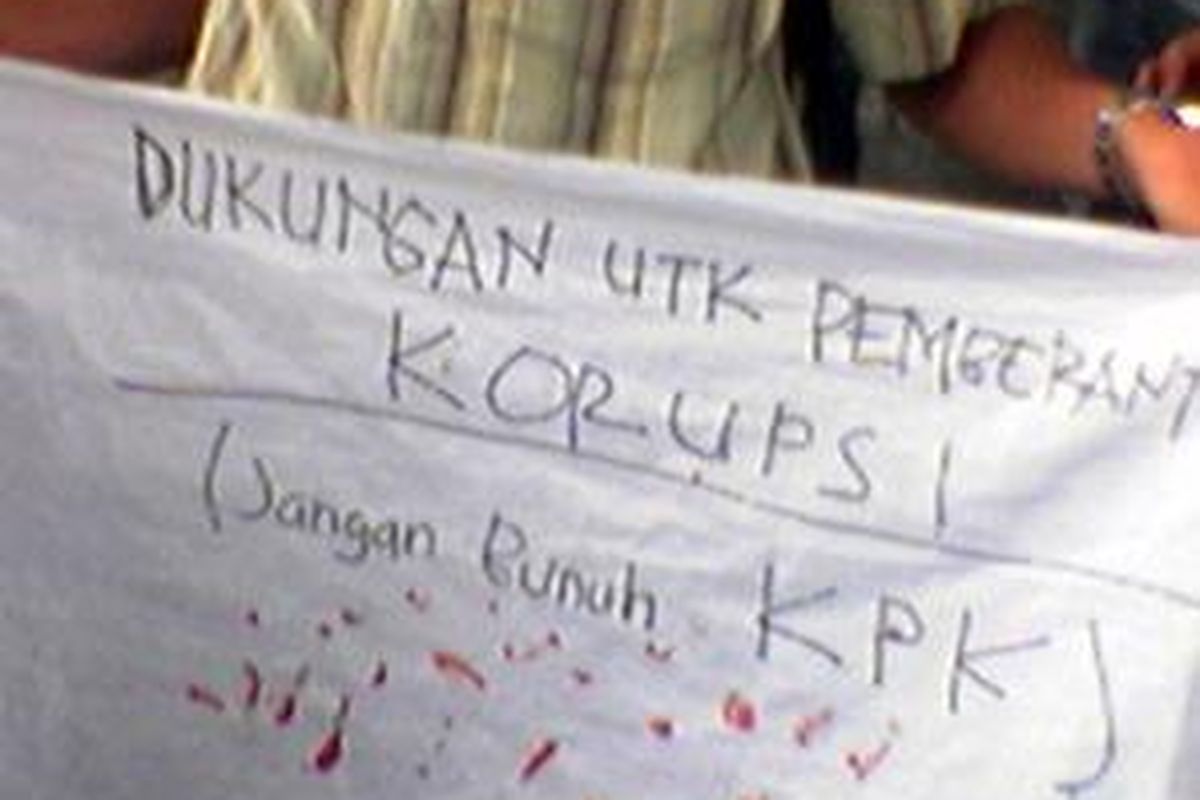 DUKUNGAN UTK PEMBERANT
KORUPSI
(Jangan Bunuh KPK)